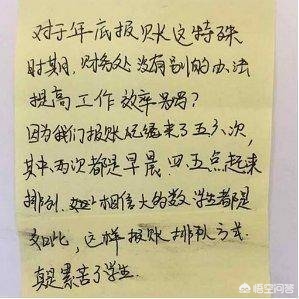 对于年底报账这特殊
时期,财务处没有别的办法
提高工作效率吗?
因为我们报账已经来了五六次,
其中两次都是早晨四五点起来
排列.相信大的数学生都是
如此,这样报账排队方式
真是累苦了学生.
悟空问答